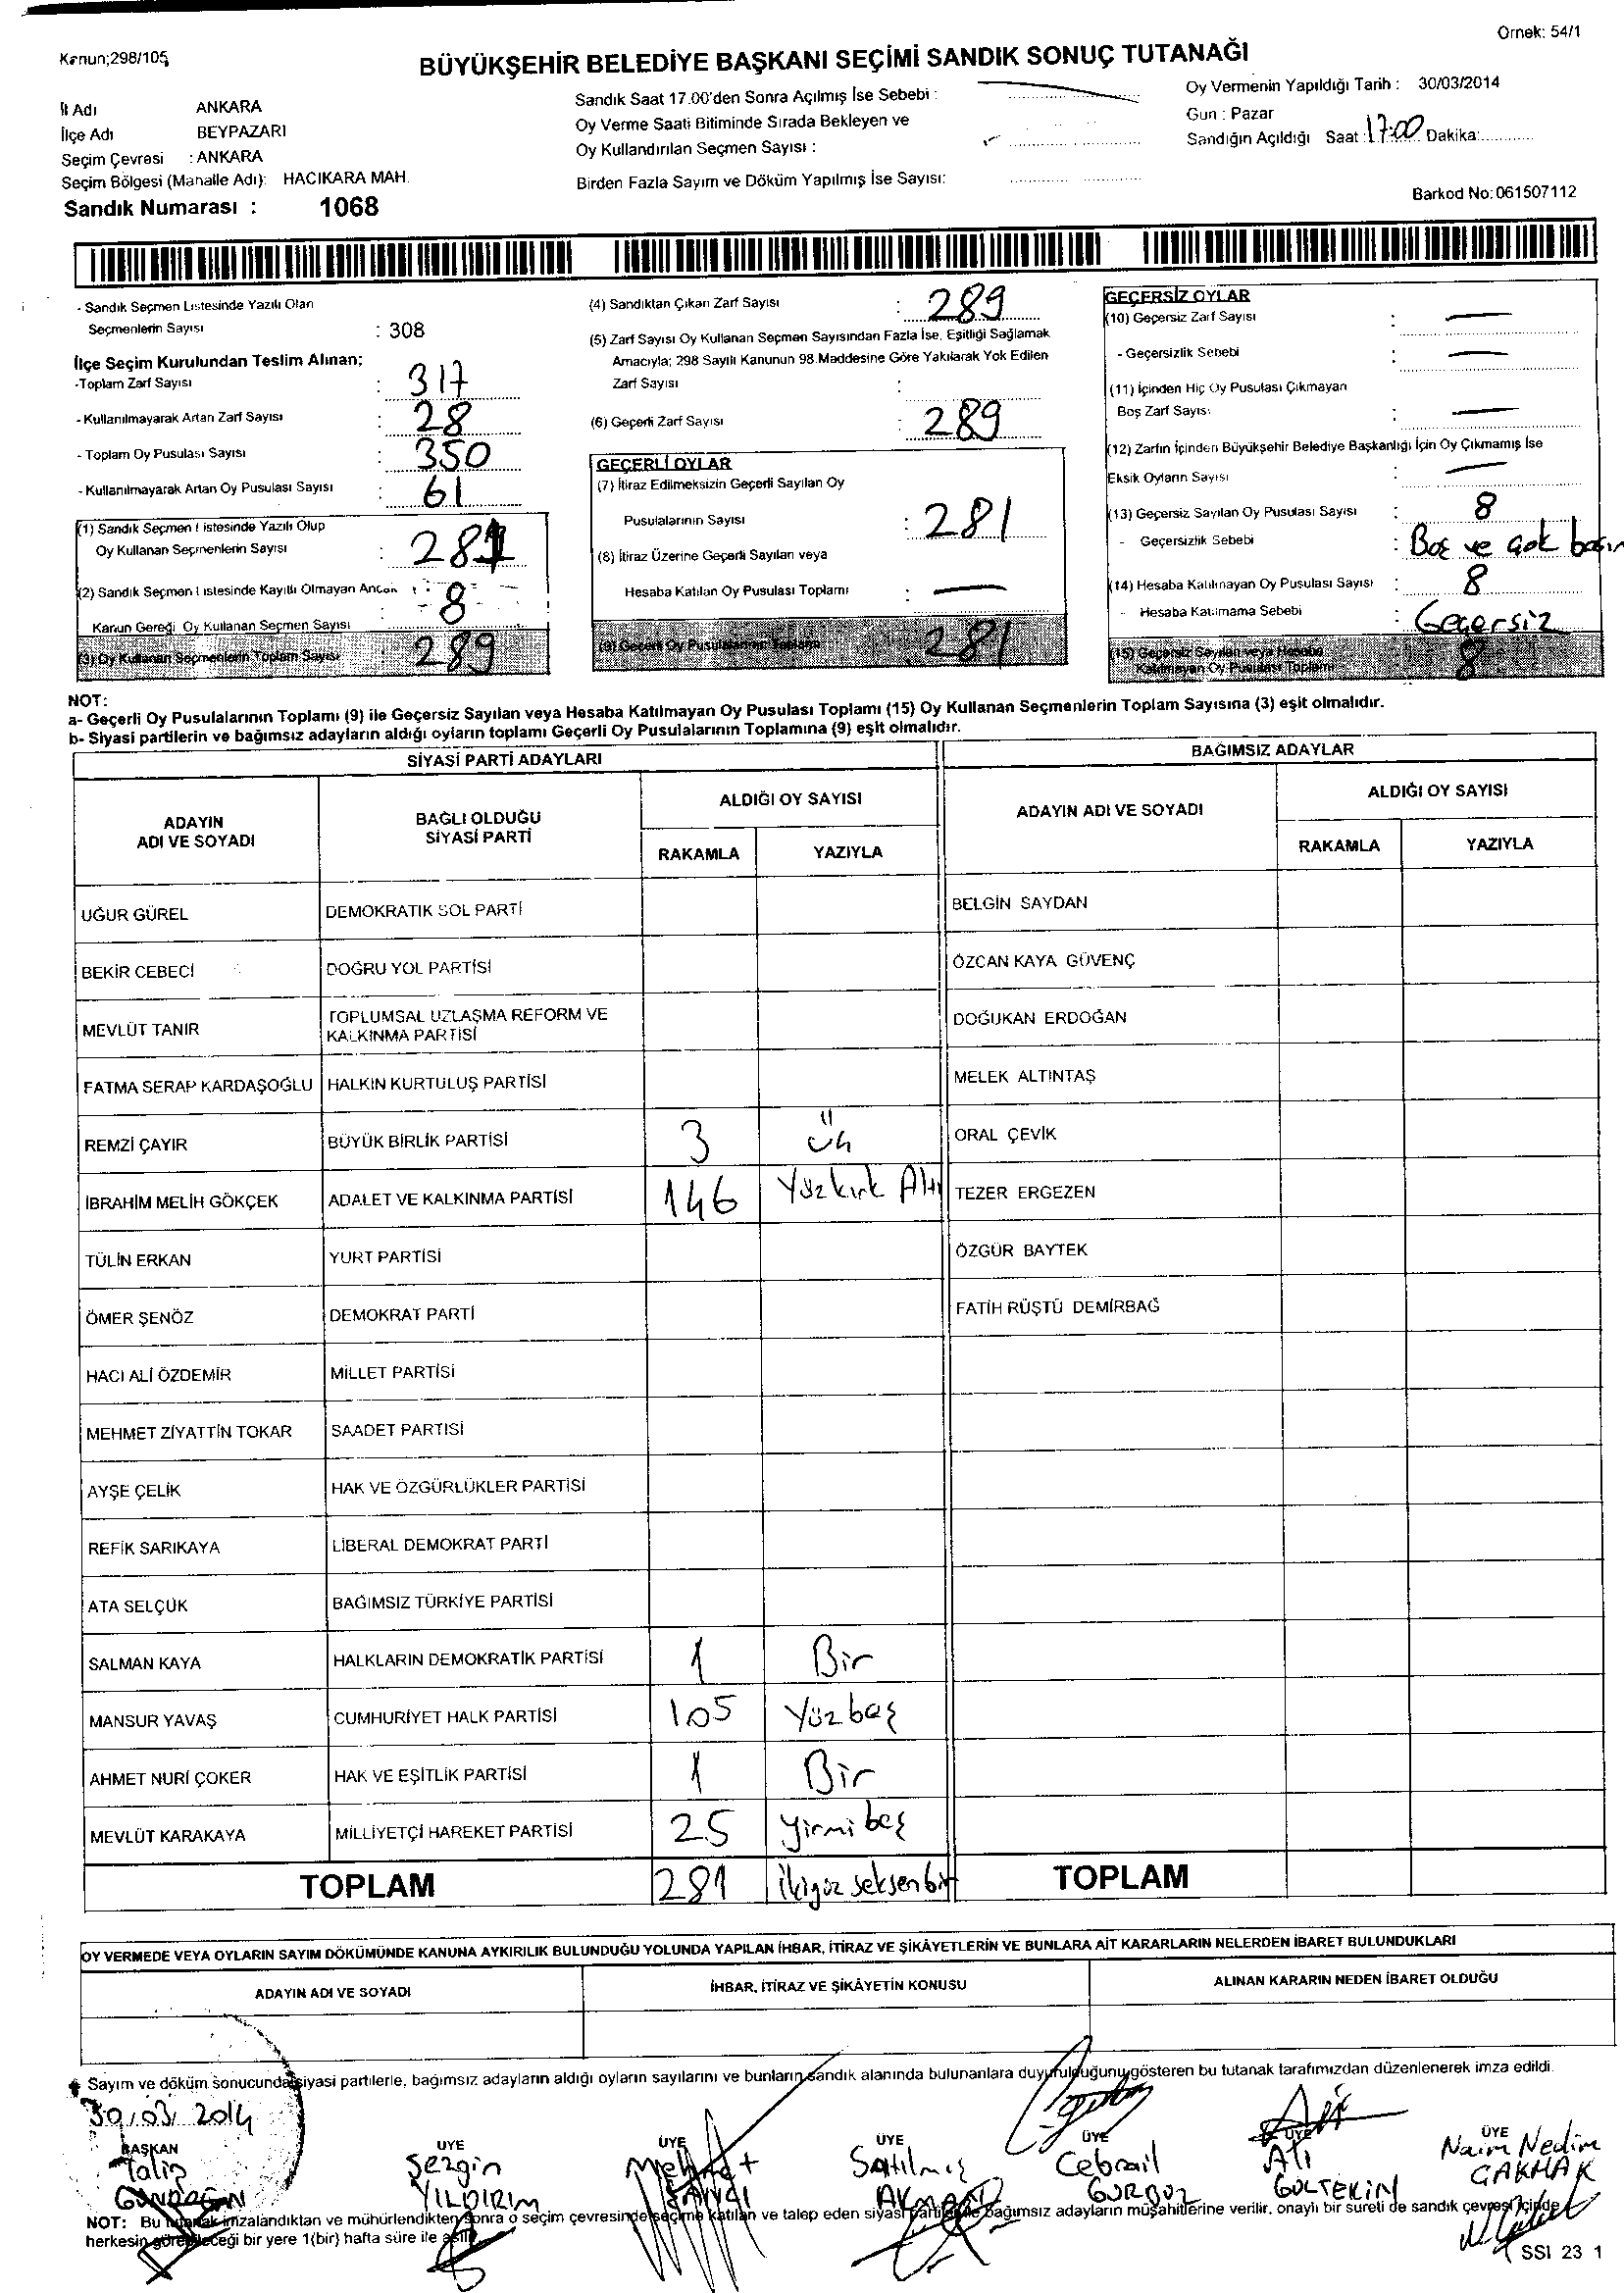 Örnek: 54/1
Kanun;298/105
BÜYÜKŞEHİR BELEDİYE BAŞKANI SEÇİMİ SANDIK SONUÇ TUTANAĞI
İl Adı ANKARA
İlçe Adı BEYPAZARI
Seçim Çevresi : ANKARA
Seçim Bölgesi (Mahalle Adı): HACIKARA MAH.
Sandık Numarası : 1068
Sandık Saat 17.00'den Sonra Açılmış İse Sebebi :
Oy Verme Saati Bitiminde Sırada Bekleyen ve
Oy Kullandırılan Seçmen Sayısı :
Birden Fazla Sayım ve Döküm Yapılmış İse Sayısı:
Oy Vermenin Yapıldığı Tarih : 30/03/2014
Gün : Pazar
Sandığın Açıldığı Saat : 17:00 Dakika:
Barkod No: 061507112
- Sandık Seçmen Listesinde Yazılı Olan
Seçmenlerin Sayısı : 308
İlçe Seçim Kurulundan Teslim Alınan;
-Toplam Zarf Sayısı : 317
- Kullanılmayarak Artan Zarf Sayısı : 28
- Toplam Oy Pusulası Sayısı : 350
- Kullanılmayarak Artan Oy Pusulası Sayısı : 61
(1) Sandık Seçmen Listesinde Yazılı Olup
Oy Kullanan Seçmenlerin Sayısı : 281
(2) Sandık Seçmen Listesinde Kayıtlı Olmayan Ancak
Kanun Gereği Oy Kullanan Seçmen Sayısı : 8
(3) Oy Kullanan Seçmenlerin Toplam Sayısı 289
(4) Sandıktan Çıkan Zarf Sayısı : 289
(5) Zarf Sayısı Oy Kullanan Seçmen Sayısından Fazla İse, Eşitliği Sağlamak
Amacıyla; 298 Sayılı Kanunun 98.Maddesine Göre Yakılarak Yok Edilen
Zarf Sayısı :
(6) Geçerli Zarf Sayısı : 289
GEÇERLİ OYLAR
(7) İtiraz Edilmeksizin Geçerli Sayılan Oy
Pusulalarının Sayısı : 281
(8) İtiraz Üzerine Geçerli Sayılan veya
Hesaba Katılan Oy Pusulası Toplamı : —
(9) Geçerli Oy Pusulalarının Toplamı 281
GEÇERSİZ OYLAR
(10) Geçersiz Zarf Sayısı : —
- Geçersizlik Sebebi : —
(11) İçinden Hiç Oy Pusulası Çıkmayan
Boş Zarf Sayısı : —
(12) Zarfın İçinden Büyükşehir Belediye Başkanlığı İçin Oy Çıkmamış İse
Eksik Oyların Sayısı : —
(13) Geçersiz Sayılan Oy Pusulası Sayısı : 8
- Geçersizlik Sebebi : Boş ve çok basım
(14) Hesaba Katılmayan Oy Pusulası Sayısı : 8
- Hesaba Katılmama Sebebi : Geçersiz
(15) Geçersiz Sayılan veya Hesaba
Katılmayan Oy Pusulası Toplamı 8
NOT:
a- Geçerli Oy Pusulalarının Toplamı (9) ile Geçersiz Sayılan veya Hesaba Katılmayan Oy Pusulası Toplamı (15) Oy Kullanan Seçmenlerin Toplam Sayısına (3) eşit olmalıdır.
b- Siyasi partilerin ve bağımsız adayların aldığı oyların toplamı Geçerli Oy Pusulalarının Toplamına (9) eşit olmalıdır.
SİYASİ PARTİ ADAYLARI BAĞIMSIZ ADAYLAR
ADAYIN ADI VE SOYADI BAĞLI OLDUĞU SİYASİ PARTİ ALDIĞI OY SAYISI ADAYIN ADI VE SOYADI ALDIĞI OY SAYISI
RAKAMLA YAZIYLA RAKAMLA YAZIYLA
UĞUR GÜREL DEMOKRATİK SOL PARTİ BELGİN SAYDAN
BEKİR CEBECİ DOĞRU YOL PARTİSİ ÖZCAN KAYA GÜVENÇ
MEVLÜT TANIR TOPLUMSAL UZLAŞMA REFORM VE KALKINMA PARTİSİ DOĞUKAN ERDOĞAN
FATMA SERAP KARDAŞOĞLU HALKIN KURTULUŞ PARTİSİ MELEK ALTINTAŞ
REMZİ ÇAYIR BÜYÜK BİRLİK PARTİSİ 3 Üç ORAL ÇEVİK
İBRAHİM MELİH GÖKÇEK ADALET VE KALKINMA PARTİSİ 146 Yüzkırk Altı TEZER ERGEZEN
TÜLİN ERKAN YURT PARTİSİ ÖZGÜR BAYTEK
ÖMER ŞENÖZ DEMOKRAT PARTİ FATİH RÜŞTÜ DEMİRBAĞ
HACI ALİ ÖZDEMİR MİLLET PARTİSİ
MEHMET ZİYATTİN TOKAR SAADET PARTİSİ
AYŞE ÇELİK HAK VE ÖZGÜRLÜKLER PARTİSİ
REFİK SARIKAYA LİBERAL DEMOKRAT PARTİ
ATA SELÇUK BAĞIMSIZ TÜRKİYE PARTİSİ
SALMAN KAYA HALKLARIN DEMOKRATİK PARTİSİ 1 Bir
MANSUR YAVAŞ CUMHURİYET HALK PARTİSİ 105 Yüzbeş
AHMET NURİ ÇOKER HAK VE EŞİTLİK PARTİSİ 1 Bir
MEVLÜT KARAKAYA MİLLİYETÇİ HAREKET PARTİSİ 25 yirmibeş
TOPLAM 281 İkiyüz seksenbir TOPLAM
OY VERMEDE VEYA OYLARIN SAYIM DÖKÜMÜNDE KANUNA AYKIRILIK BULUNDUĞU YOLUNDA YAPILAN İHBAR, İTİRAZ VE ŞİKÂYETLERİN VE BUNLARA AİT KARARLARIN NELERDEN İBARET BULUNDUKLARI
ADAYIN ADI VE SOYADI İHBAR, İTİRAZ VE ŞİKÂYETİN KONUSU ALINAN KARARIN NEDEN İBARET OLDUĞU
Sayım ve döküm sonucunda siyasi partilerle, bağımsız adayların aldığı oyların sayılarını ve bunların sandık alanında bulunanlara duyurulduğunu gösteren bu tutanak tarafımızdan düzenlenerek imza edildi.
30.03.2014
BAŞKAN ÜYE ÜYE ÜYE ÜYE ÜYE ÜYE
Talip Sezgin Mehmet Satılmış Cebrail Ali Naim Nedim
GÜNDOĞAN YILDIRIM GÜRBÜZ GÜLTEKİN ÇAKMAK
NOT: Bu tutanak imzalandıktan ve mühürlendikten sonra o seçim çevresinde seçime katılan ve talep eden siyasi parti ile bağımsız adayların müşahitlerine verilir, onaylı bir sureti de sandık çevresi içinde
herkesin görebileceği bir yere 1(bir) hafta süre ile asılır.
SSI 23 1